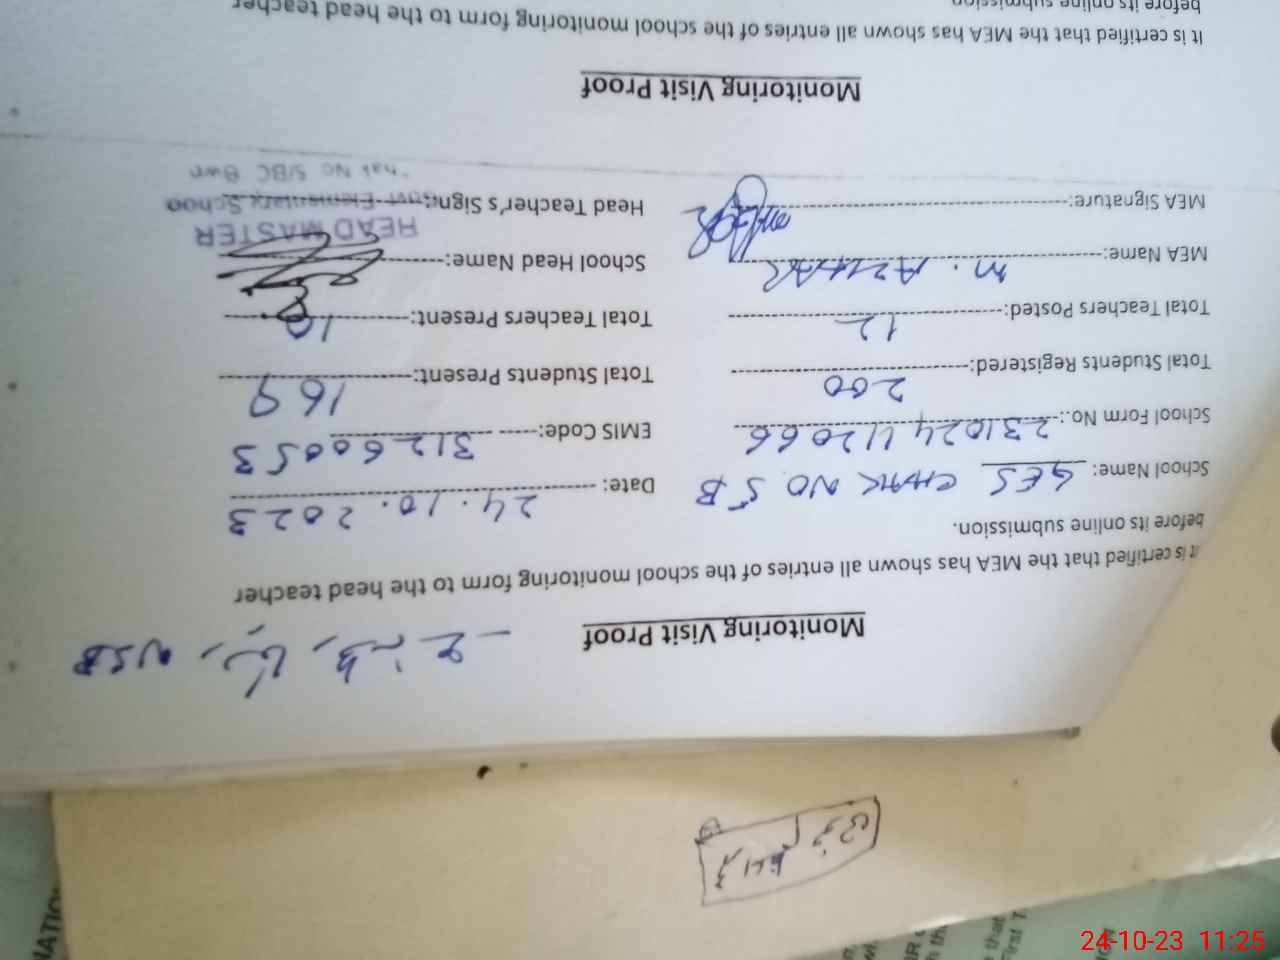 NSB
Monitoring Visit Proof
It is certified that the MEA has shown all entries of the school monitoring form to the head teacher
before its online submission.
School Name: GES CHAK NO 5 B Date: 24.10.2023
School Form No.: 231024112066 EMIS Code: 31260053
Total Students Registered: 200 Total Students Present: 169
Total Teachers Posted: 12 Total Teachers Present: 10
MEA Name: M. AZHAR School Head Name:
HEAD MASTER
MEA Signature: Head Teacher's Sign:
Govt Elementary School
Chak No 5/BC Bwp
Monitoring Visit Proof
It is certified that the MEA has shown all entries of the school monitoring form to the head teacher
before its online submission
24-10-23 11:25